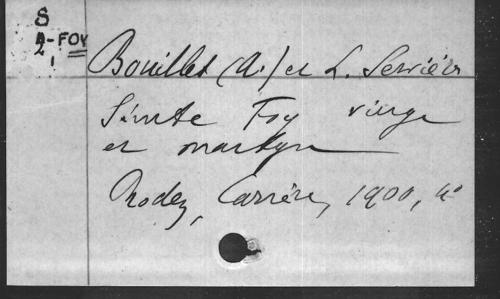 S
A-FOY
2,
Bouillet (A.) et L. Servières
Sainte Foy vierge
et martyre
Rodez, Carrère, 1900, 4°